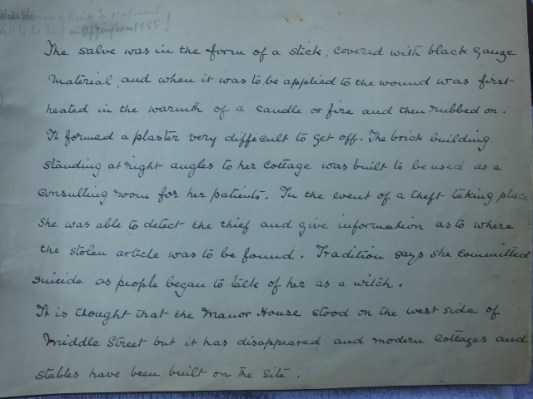 The salve was in the form of a stick, covered with black gauze
material, and when it was to be applied to the wound was first
heated in the warmth of a candle or fire and then rubbed on.
It formed a plaster very difficult to get off. The brick building
standing at right angles to her cottage was built to be used as a
consulting room for her patients. In the event of a theft taking place
she was able to detect the thief and give information as to where
the stolen article was to be found. Tradition says she committed
suicide as people began to talk of her as a witch.
It is thought that the Manor House stood on the west side of
Middle Street but it has disappeared and modern cottages and
stables have been built on the site.